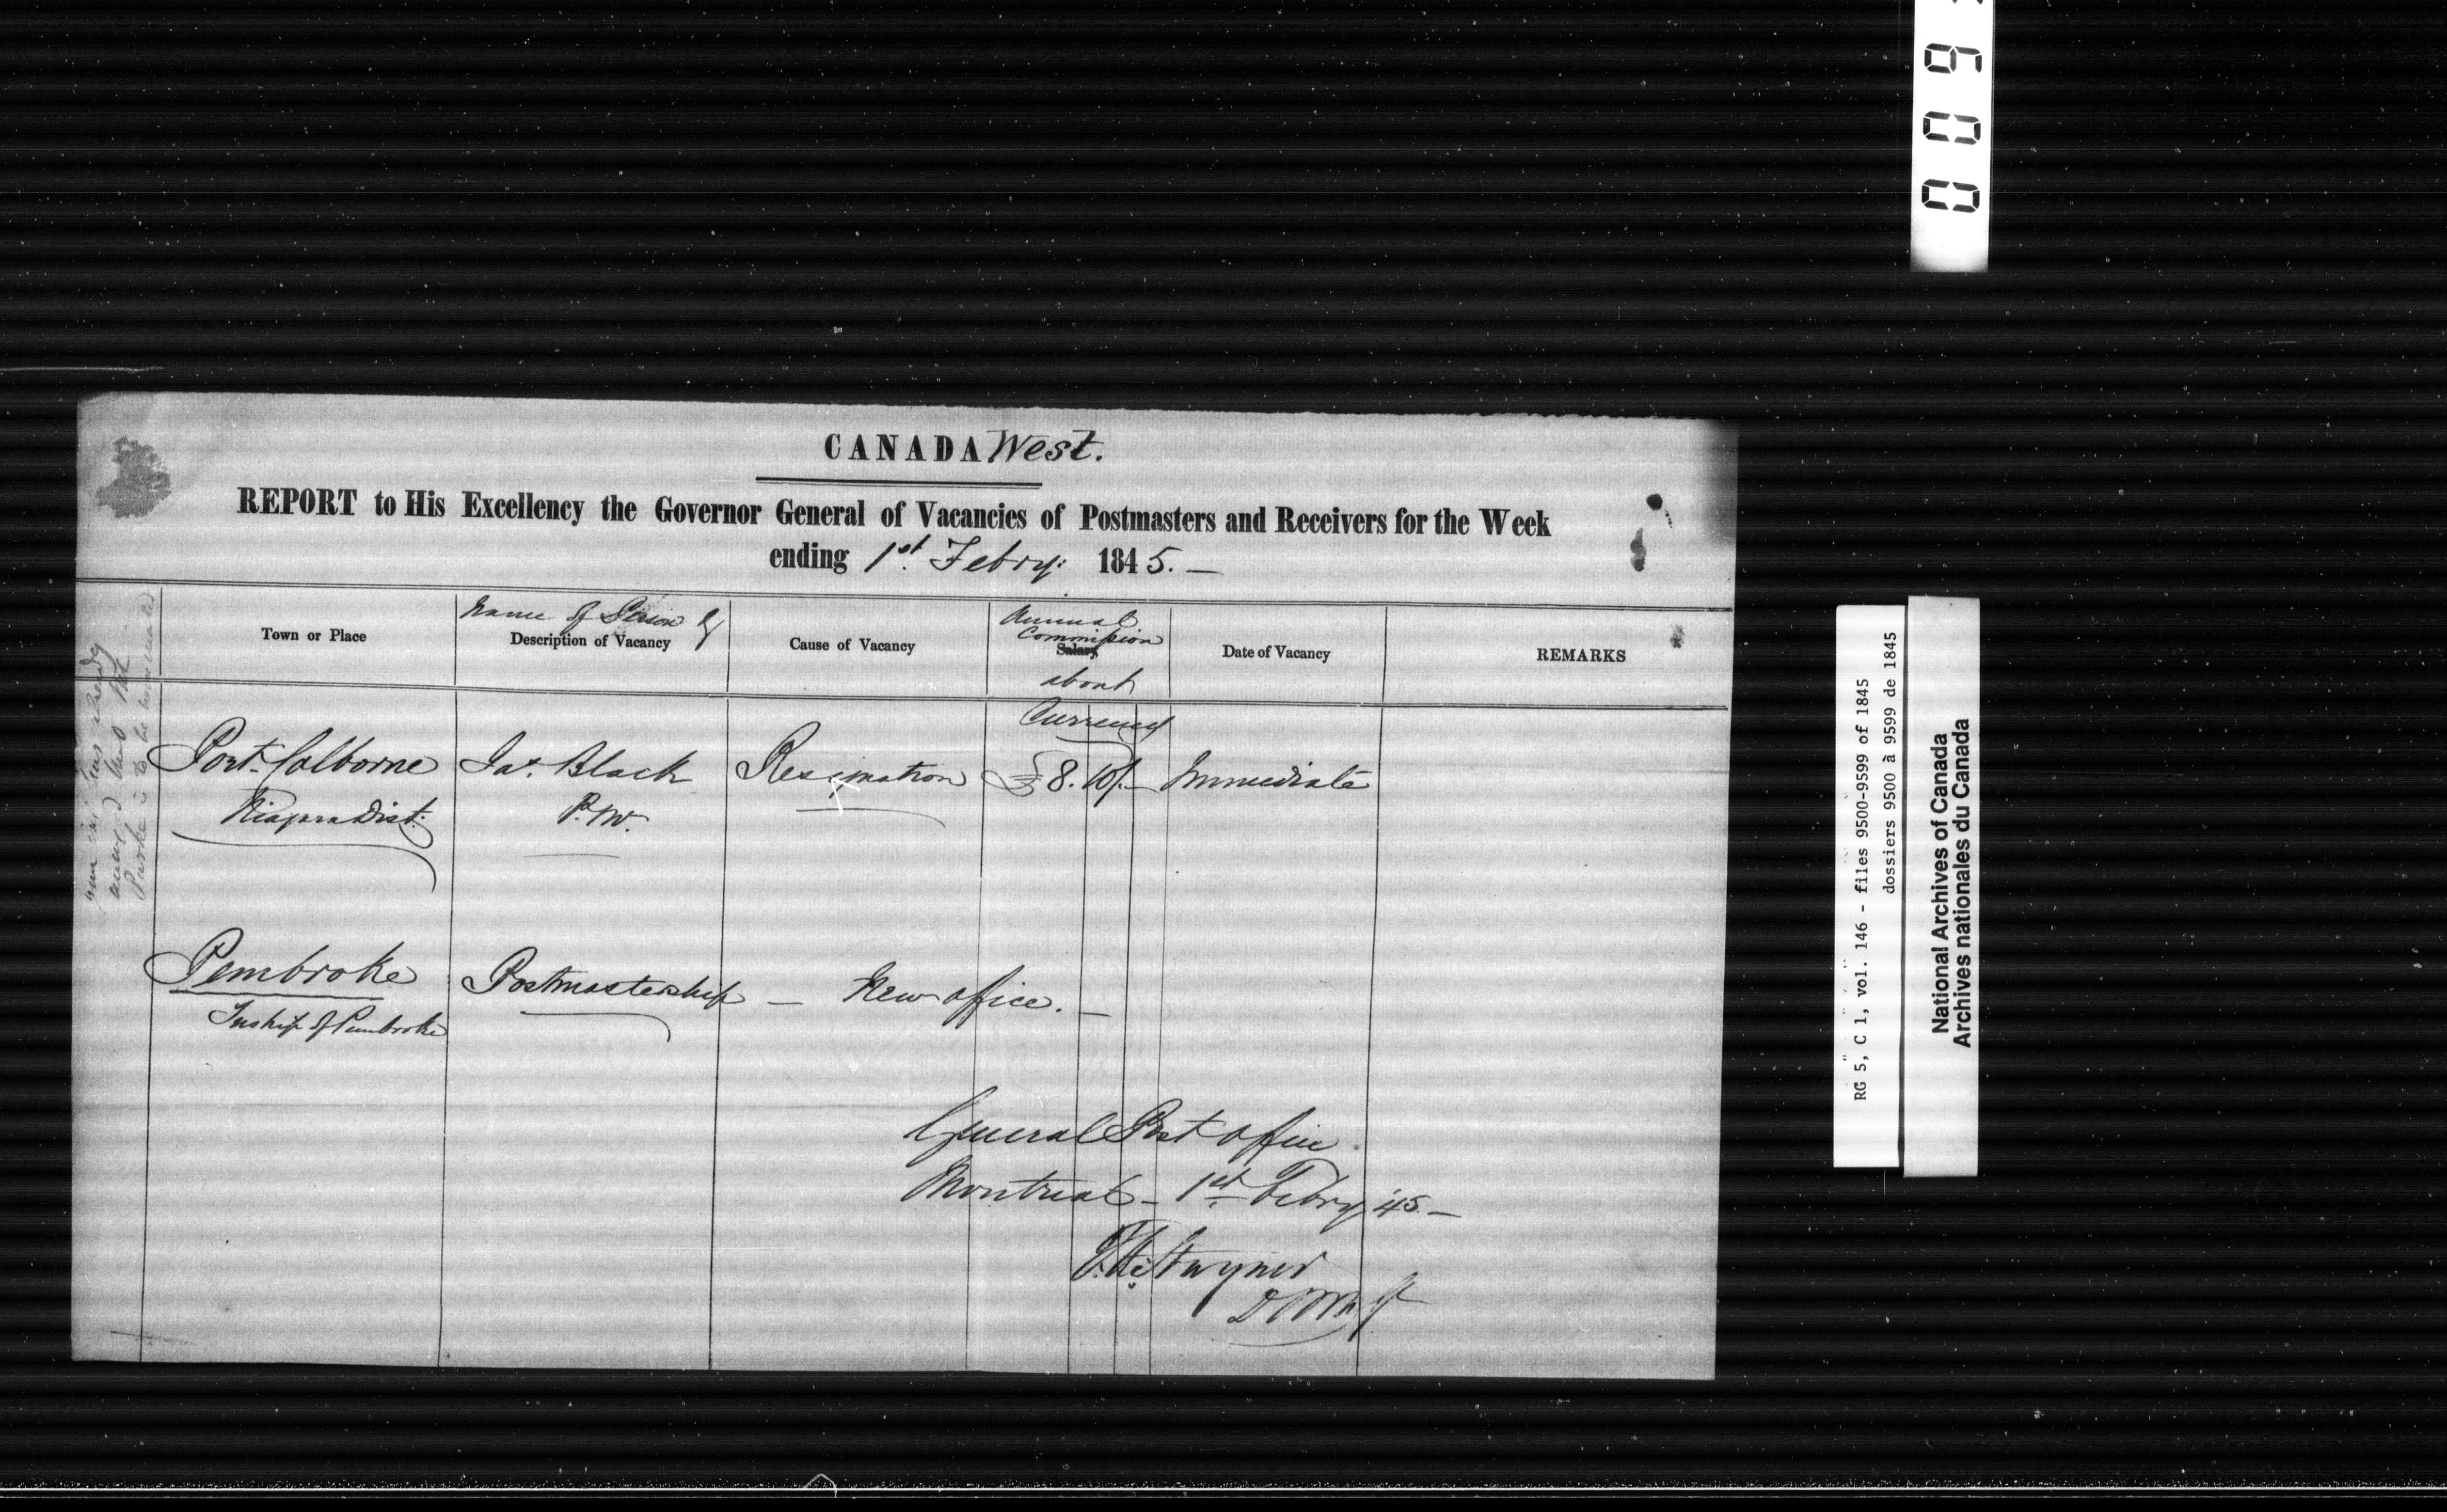 0 0 9
CANADA West.
REPORT to His Excellency the Governor General of Vacancies of Postmasters and Receivers for the Week
ending 1st Febry: 1845. —
Town or Place
Name of Person &
Description of Vacancy
Cause of Vacancy
Annual
Commission
Salary
about
Date of Vacancy
REMARKS
Currency
Port Colborne Jas. Black Resignation £8. 10/- Immediate
Niagara Dist: P.M.
Pembroke Postmastership — New office. —
Tnship of Pembroke
General Post Office
Montreal — 1st Febry '45. —
T.A. Stayner
DPMG
to be
RG 5, C 1, vol. 146 - files 9500-9599 of 1845
dossiers 9500 à 9599 de 1845
National Archives of Canada
Archives nationales du Canada